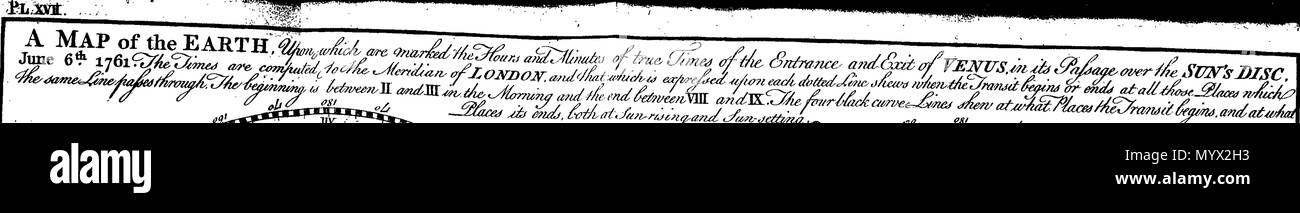 PL. XVII.
A MAP of the EARTH, Upon which are marked the Hours and Minutes of true Times of the Entrance and Exit of VENUS, in its Paſsage over the SUN's DISC,
June 6th. 1761. The Times are computed to the Meridian of LONDON, and that which is expreſsed upon each dotted Line shews when the Transit begins or ends at all those Places which
the same Line paſses through. The beginning is between II and III in the Morning and the end between VIII and IX. The four black curve Lines shew at what Places the Transit begins, and at what
Places its ends, both at Sun-rising and Sun-setting.
160 170 180 170
180
alamy
alamy
Image ID: MYX2H3
www.alamy.com